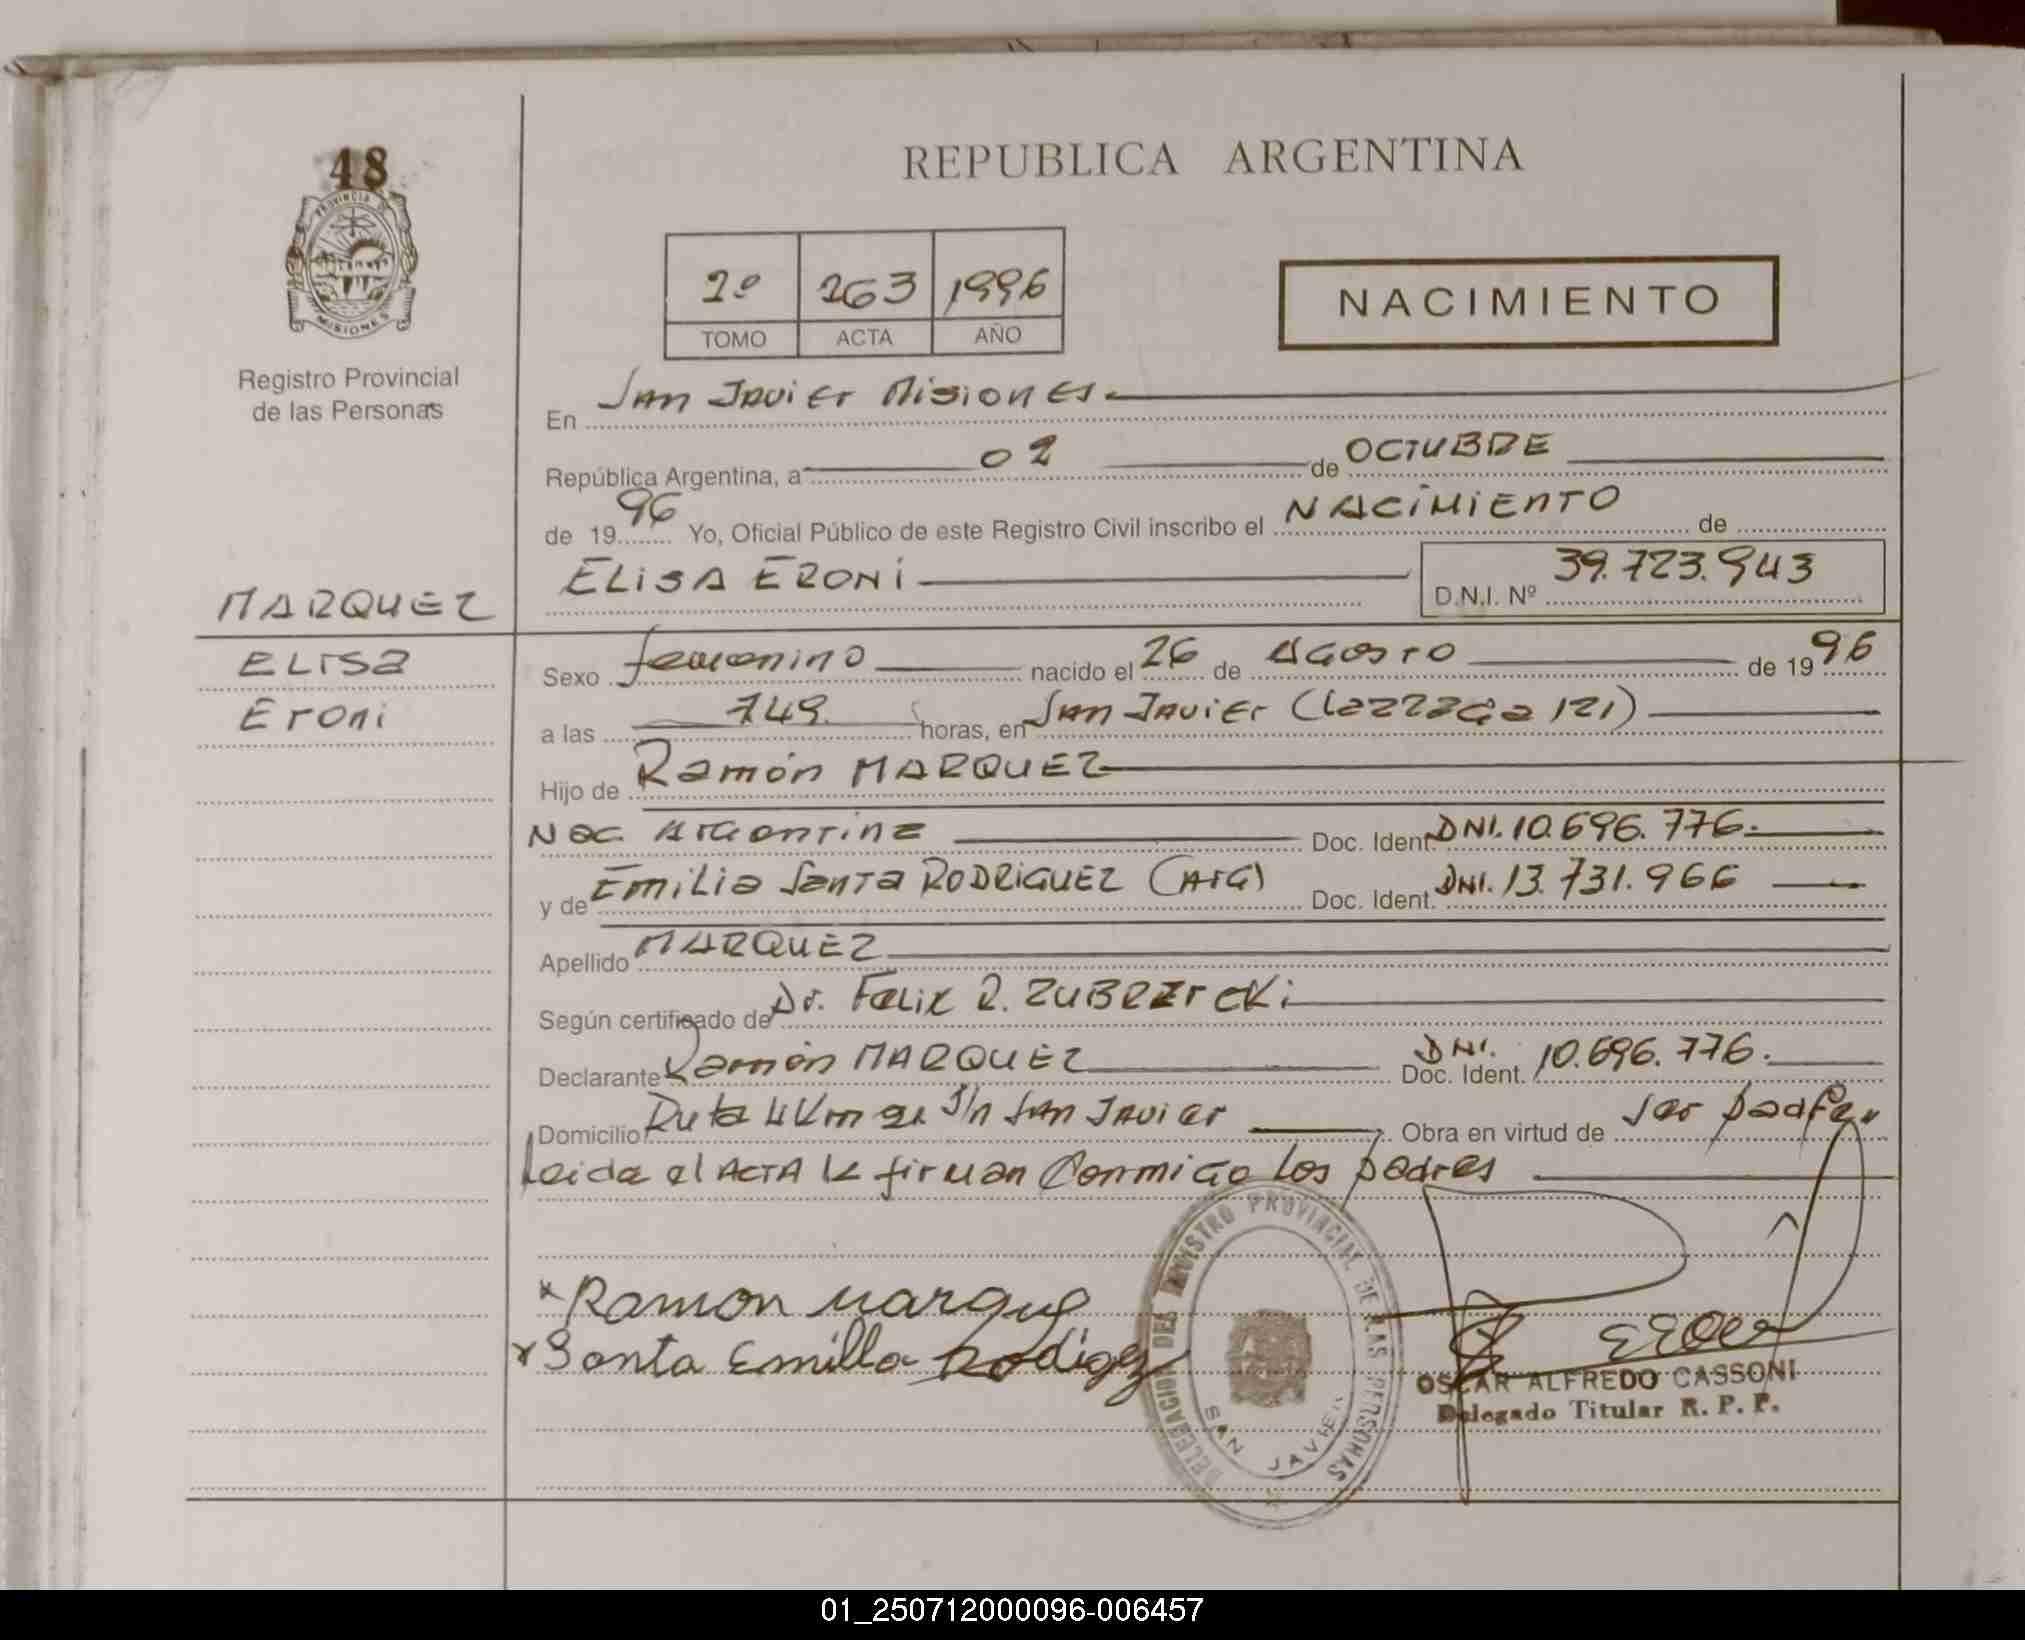 48
PROVINCIA DE
MISIONES
Registro Provincial
de las Personas
REPUBLICA ARGENTINA
2º 263 1996
TOMO ACTA AÑO
NACIMIENTO
En San Javier Misiones.
República Argentina, a 02 de OCTUBRE
de 1996 Yo, Oficial Público de este Registro Civil inscribo el NACIMIENTO de
ELISA ERONI D.N.I. Nº 39.723.943
MARQUEZ
ELISA
Eroni
Sexo femenino nacido el 26 de Agosto de 1996
a las 749. horas, en San Javier (Lezzaga 121)
Hijo de Ramón MARQUEZ
Nac Argentina Doc. Ident. DNI. 10.696.776.
y de Emilia Santa RODRIGUEZ (Arg) Doc. Ident. DNI. 13.731.966
Apellido MARQUEZ
Según certificado de Dr. Felix R. ZUBRZYCKI
Declarante Ramón MARQUEZ Doc. Ident. DNI. 10.696.776.
Domicilio Ruta 4 Km S/n San Javier Obra en virtud de ser padre,,
Leida el ACTA la firman Conmigo los padres
x Ramon Marque
x Santa Emilla Rodigez
DELEGACION DEL REGISTRO PROVINCIAL DE LAS PERSONAS
SAN JAVIER
OSCAR ALFREDO CASSONI
Delegado Titular R. P. P.
01_250712000096-006457